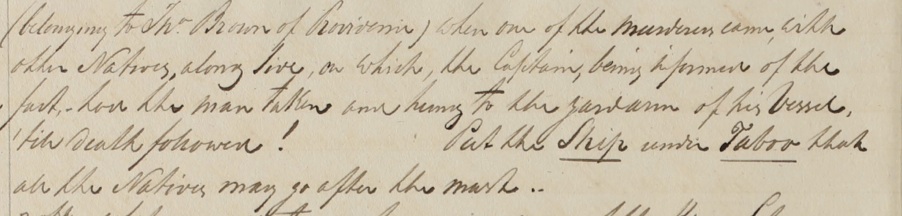 (belonging to Thos. Brown of Providence) when one of the murderers came, with
other Natives, along side, on which, the Captain, being informed of the
fact, - had the man taken and hung to the yardarm of his Vessel,
'till death followed! Put the Ship under Taboo that
all the Natives may go after the mast ..